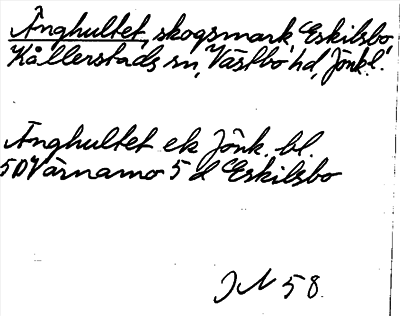 Änghultet, skogsmark, Eskilsbo,
Kållerstads sn, Västbo hd, Jönk.l.
Änghultet ek Jönk. bl.
5D Värnamo 5 d Eskilsbo
JN 58.